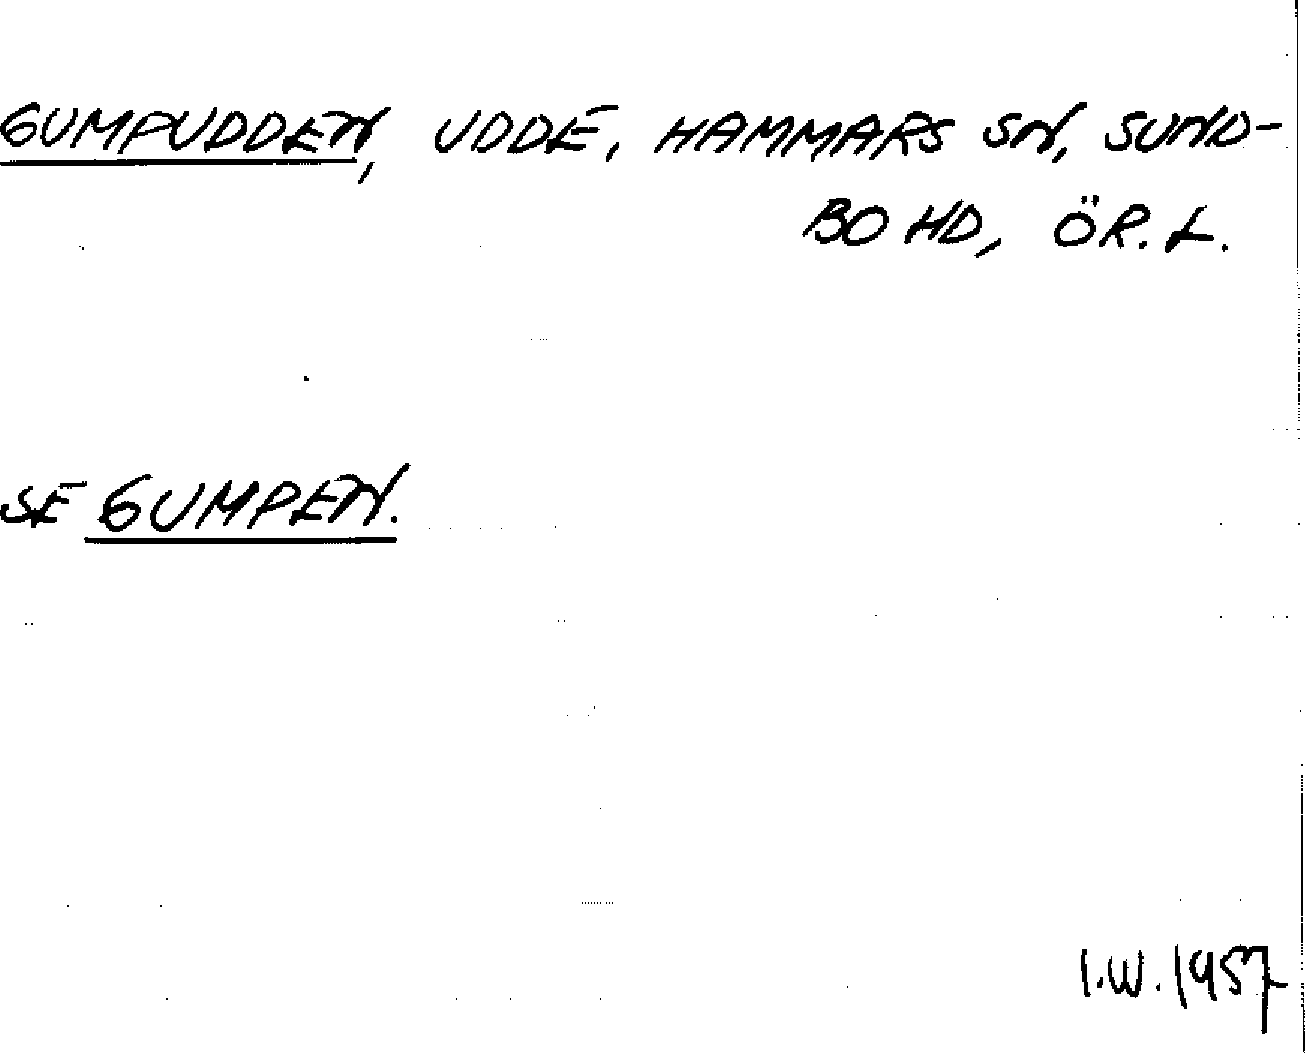 GUMPUDDEN, UDDE, HAMMARS SN, SUND-
BO HD, ÖR. L.
SE GUMPEN.
I.W. 1957